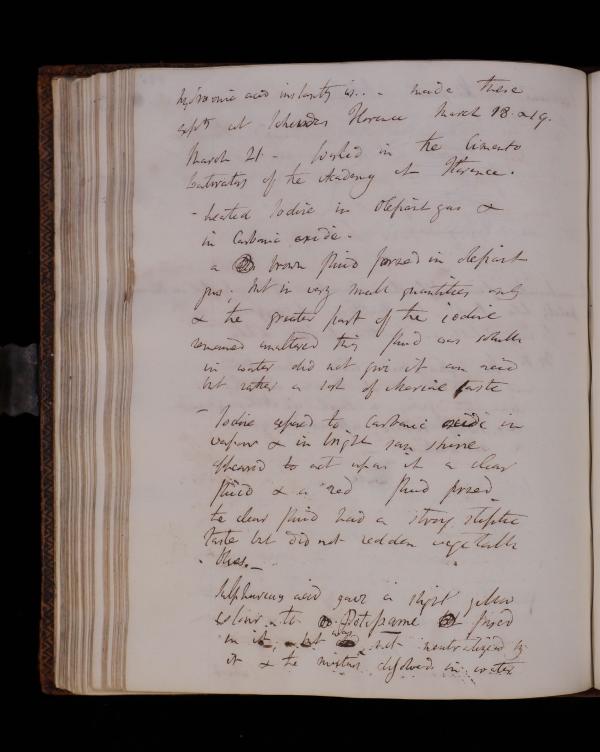 hydroionic acid instantly is.. - made these
expts at Florence March 18 & 19.
March 21 - worked in the Cimento
Laboratory of the Academy at Florence.
- heated Iodine in Olefiant gas &
in Carbonic oxide -
a brown fluid formed in olefiant
gas; but in very small quantities only
& the greater part of the iodine
remained unaltered this fluid was soluble
in water did not give it an acid
but rather a sort of taste
- Iodine exposed to Carbonic oxide in
vapour & in bright sun shine
appeared to act upon it a clear
fluid & a red fluid formed
the clear fluid had a strong styptic
taste but did not redden vegetable
blues. -
Sulphureous acid gave a slight yellow
colour to fused
in it; but was not neutralized by
it & the mixture dissolved in water